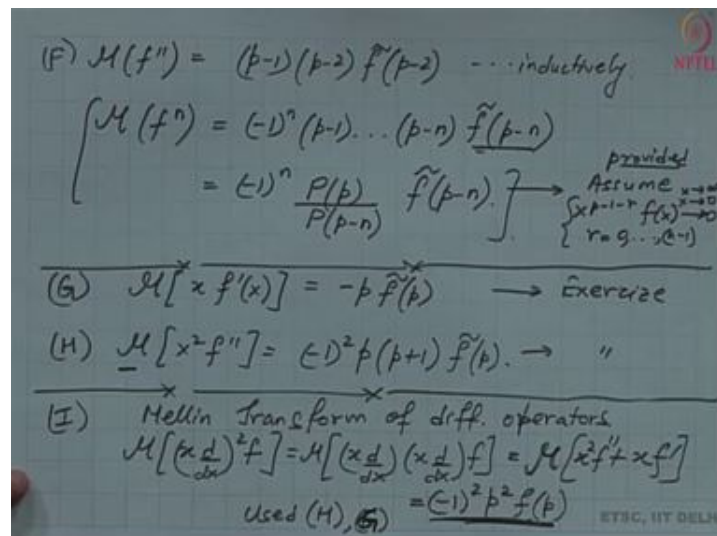 (F) M(f'') = (p-1)(p-2) f̃(p-2) --- inductively.
NPTEL
M(fⁿ) = (-1)ⁿ (p-1)...(p-n) f̃(p-n)
= (-1)ⁿ Γ(p)/Γ(p-n) f̃(p-n). →
provided
Assume x→∞
{x^{p-1-r} f(x) →0 x→0
{ r=0...,(n-1)
(G) M[x f'(x)] = -p f̃(p) → Exercize
(H) M[x²f''] = (-1)² p(p+1) f̃(p). → "
(I) Mellin Transform of diff. operators
M[(x d/dx)² f] = M[(x d/dx)(x d/dx)f] = M[x²f''+xf']
Used (H), (G) = (-1)² p² f̃(p)
ETSC, IIT DELH